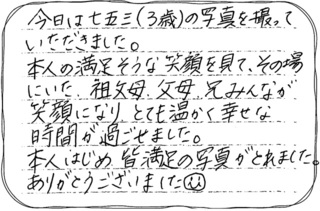 今日は七五三(3歳)の写真を撮って
いただきました。
本人の満足そうな笑顔を見て、その場
にいた祖父母、父母、兄みんなが
笑顔になり、とても温かく幸せな
時間が過ごせました。
本人はじめ、皆満足の写真がとれました。
ありがとうございました